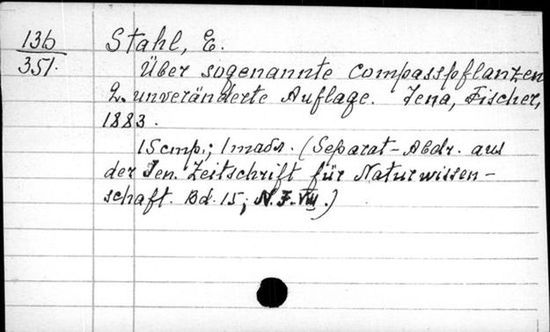 136
351.
Stahl, E.
Über sogenannte Compasspflanzen
2. unveränderte Auflage. Jena, Fischer,
1883.
15 стр.; 1 табл. (Separat-Abdr. aus
der Jen. Zeitschrift für Naturwissen-
schaft. Bd. 15; N. F. VIII.)